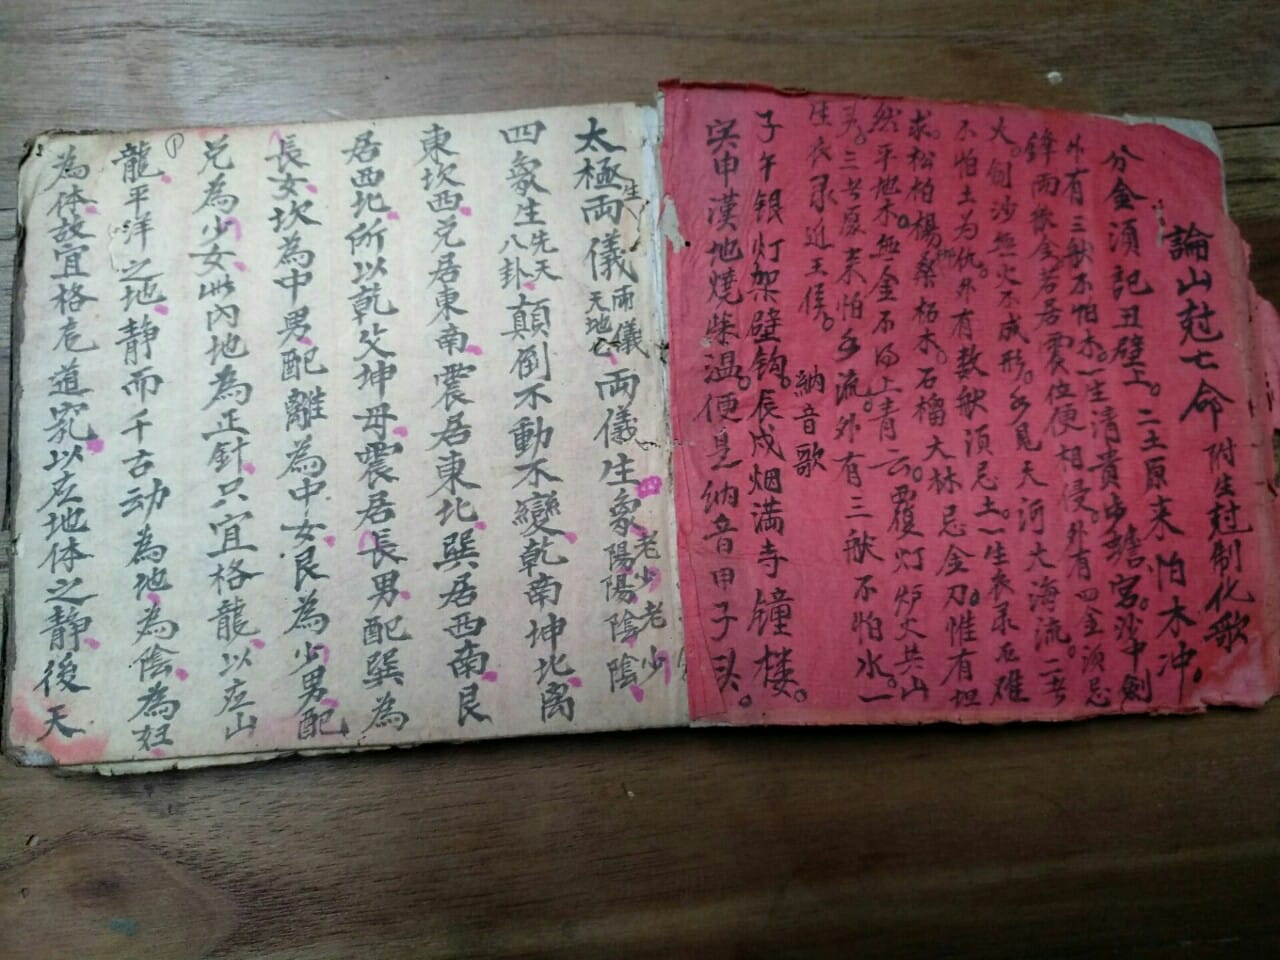 論山尅亡命附生尅制化歌
分金須記丑壁土。二土原来怕木冲。
外有三般不怕木。一生清貴步蟾宮。沙中劍
鋒兩般金若居震位便相侵。外有四金須忌
火。劍沙無火不成形。水見天河大海流。二者
不怕土為仇。外有数般須忌土。一生衣录石难
求。松柏楊柳桑柘木。石榴大林忌金刀。惟有坦
然平地木。無金不得上青云。覆灯炉火共山
頭。三者原来怕水流。外有三般不怕水。一
生衣录近王侯。
納音歌
子午银灯架壁钩。辰戍烟满寺鐘楼。
寅申漢地燒柴温。便見納音甲子头。
太極生両儀両儀天地也両儀生四象老少老少陽陽陰陰
四象生先天八卦顛倒不動不變乾南坤北离
東坎西兑居東南震居東北巽居西南艮
居西北所以乾父坤母震居長男配巽為
長女坎為中男配離為中女艮為少男配
兑為少女此內地為正針只宜格龍以在山
龍平洋之地静而千古动為地為陰為妇
為体故宜格 道 以在地体之静後天